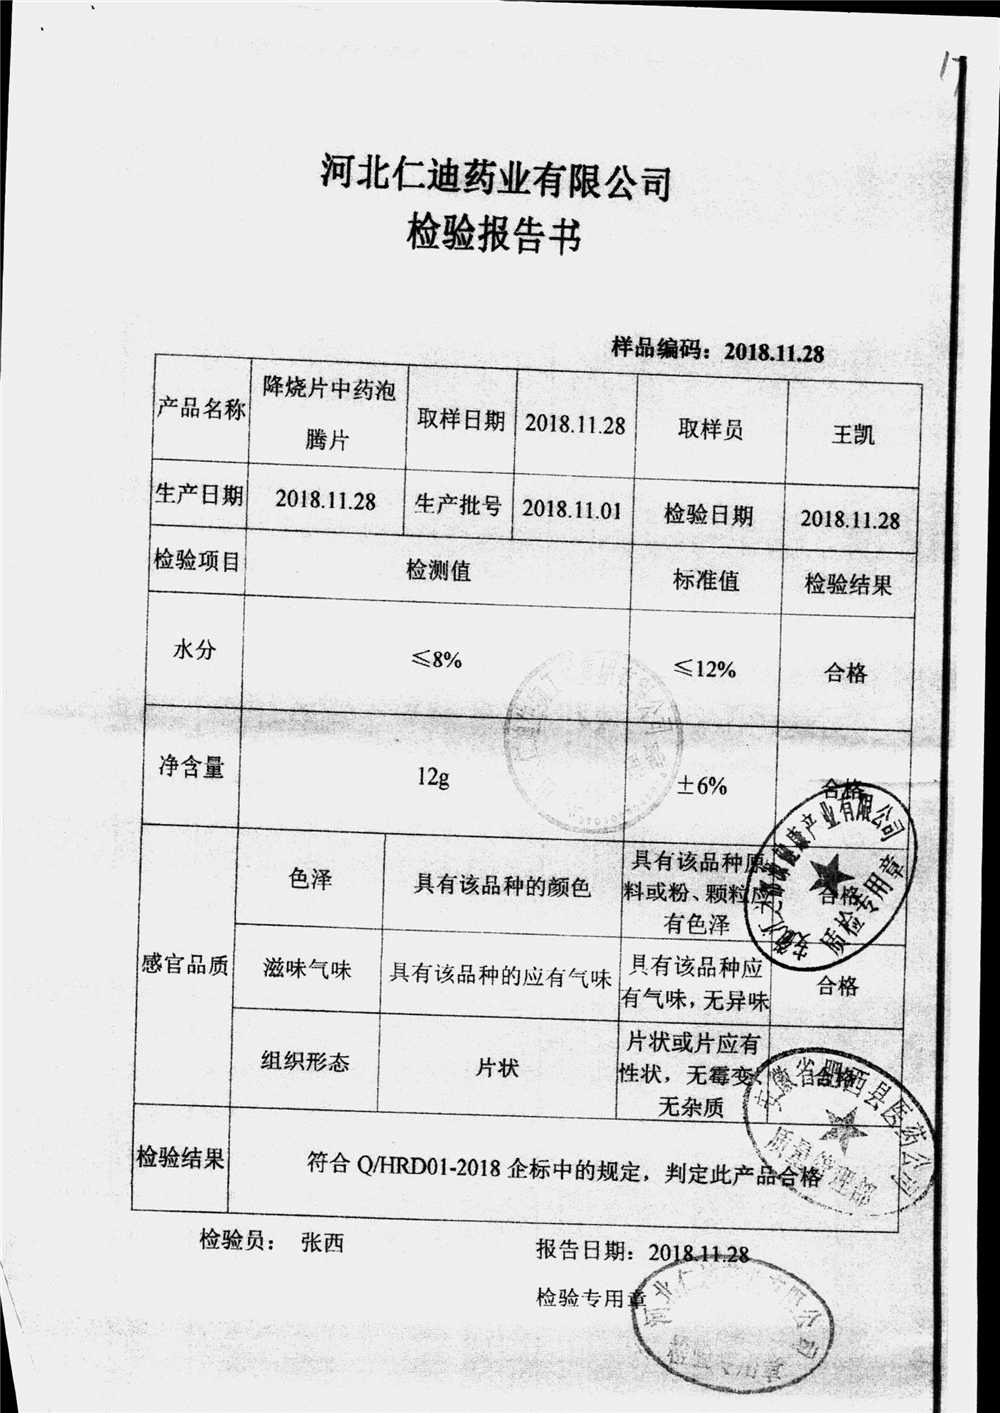 17
河北仁迪药业有限公司
检验报告书
样品编码：2018.11.28
产品名称 降烧片中药泡腾片 取样日期 2018.11.28 取样员 王凯
生产日期 2018.11.28 生产批号 2018.11.01 检验日期 2018.11.28
检验项目 检测值 标准值 检验结果
水分 ≤8% ≤12% 合格
净含量 12g ±6% 合格
感官品质
色泽 具有该品种的颜色 具有该品种原料或粉、颗粒应有色泽 合格
滋味气味 具有该品种的应有气味 具有该品种应有气味，无异味 合格
组织形态 片状 片状或片应有性状，无霉变、无杂质 合格
检验结果 符合 Q/HRD01-2018 企标中的规定，判定此产品合格
检验员： 张西
报告日期：2018.11.28
检验专用章
健康产业有限公司
质检专用章
安徽省泗西县医药公司
质量管理部
河北仁 有限公司
检验专用章